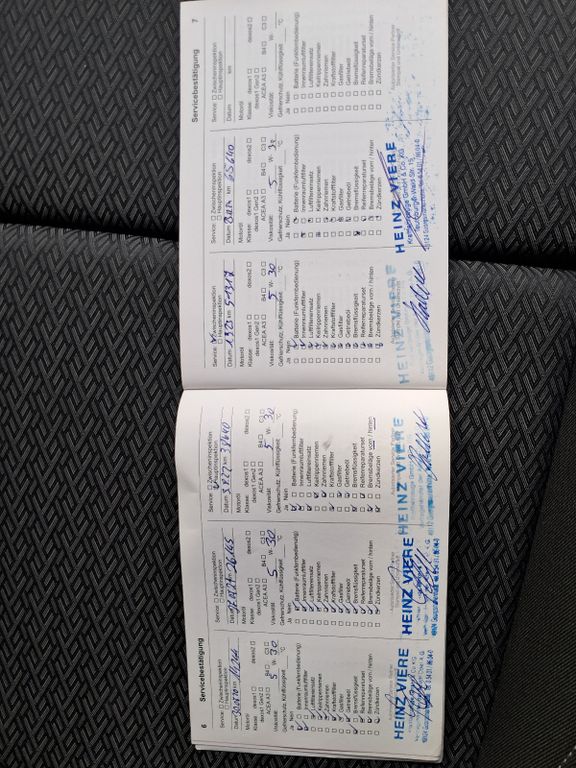 6 Servicebestätigung
Service □ Zwischeninspektion
□ Hauptinspektion
Datum km 14244
Motoröl
Klasse: dexos1 □ dexos2 □
dexos1 Gen2 □
ACEA A3 □ B4 □ C3 □
Viskosität: 5 W- 30
Gefrierschutz, Kühlflüssigkeit °C
Ja Nein
Batterie (Funkfernbedienung)
Innenraumluftfilter
Luftfiltereinsatz
Keilrippenriemen
Zahnriemen
Kraftstofffilter
Gasfilter
Getriebeöl
Bremsflüssigkeit
Reifenreparaturset
Bremsbeläge vorn / hinten
Zündkerzen
HEINZ VIERE
Service □ Zwischeninspektion
□ Hauptinspektion
Datum km 26145
Motoröl
Klasse: dexos1 □ dexos2 □
dexos1 Gen2 □
ACEA A3 □ B4 □ C3 □
Viskosität: 5 W- 30
Gefrierschutz, Kühlflüssigkeit °C
Ja Nein
Batterie (Funkfernbedienung)
Innenraumluftfilter
Luftfiltereinsatz
Keilrippenriemen
Zahnriemen
Kraftstofffilter
Gasfilter
Getriebeöl
Bremsflüssigkeit
Reifenreparaturset
Bremsbeläge vorn / hinten
Zündkerzen
HEINZ VIERE
Service □ Zwischeninspektion
Hauptinspektion
Datum km
Motoröl
Klasse: dexos1 □ dexos2 □
dexos1 Gen2 □
ACEA A3 □ B4 □ C3 □
Viskosität: 5 W- 30
Gefrierschutz, Kühlflüssigkeit °C
Ja Nein
Batterie (Funkfernbedienung)
Innenraumluftfilter
Luftfiltereinsatz
Keilrippenriemen
Zahnriemen
Kraftstofffilter
Gasfilter
Getriebeöl
Bremsflüssigkeit
Reifenreparaturset
Bremsbeläge vorn / hinten
Zündkerzen
HEINZ VIERE
Servicebestätigung 7
Service Zwischeninspektion
□ Hauptinspektion
Datum km 51317
Motoröl
Klasse: dexos1 □ dexos2 □
dexos1 Gen2 □
ACEA A3 □ B4 □ C3 □
Viskosität: 5 W- 30
Gefrierschutz, Kühlflüssigkeit °C
Ja Nein
Batterie (Funkfernbedienung)
Innenraumluftfilter
Luftfiltereinsatz
Keilrippenriemen
Zahnriemen
Kraftstofffilter
Gasfilter
Getriebeöl
Bremsflüssigkeit
Reifenreparaturset
Bremsbeläge vorn / hinten
Zündkerzen
HEINZ VIERE
Service □ Zwischeninspektion
□ Hauptinspektion
Datum km 65640
Motoröl
Klasse: dexos1 □ dexos2 □
dexos1 Gen2 □
ACEA A3 □ B4 □ C3 □
Viskosität: 5 W- 30
Gefrierschutz, Kühlflüssigkeit °C
Ja Nein
Batterie (Funkfernbedienung)
Innenraumluftfilter
Luftfiltereinsatz
Keilrippenriemen
Zahnriemen
Kraftstofffilter
Gasfilter
Getriebeöl
Bremsflüssigkeit
Reifenreparaturset
Bremsbeläge vorn / hinten
Zündkerzen
HEINZ VIERE
GmbH & Co. KG
Service □ Zwischeninspektion
□ Hauptinspektion
Datum km
Motoröl
Klasse: dexos1 □ dexos2 □
dexos1 Gen2 □
ACEA A3 □ B4 □ C3 □
Viskosität: W-
Gefrierschutz, Kühlflüssigkeit °C
Ja Nein
Batterie (Funkfernbedienung)
Innenraumluftfilter
Luftfiltereinsatz
Keilrippenriemen
Zahnriemen
Kraftstofffilter
Gasfilter
Getriebeöl
Bremsflüssigkeit
Reifenreparaturset
Bremsbeläge vorn / hinten
Zündkerzen